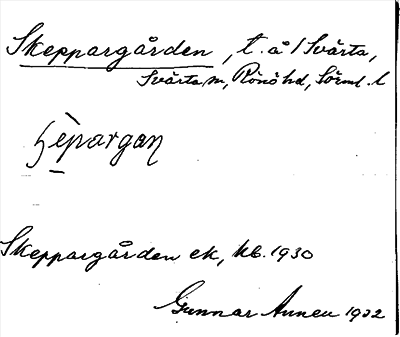 Skeppargården, t. å / Svärta,
Svärta sn, Rönö hd, Sörml. l
Skeppargården ek, kb. 1930
Gunnar Annell 1932